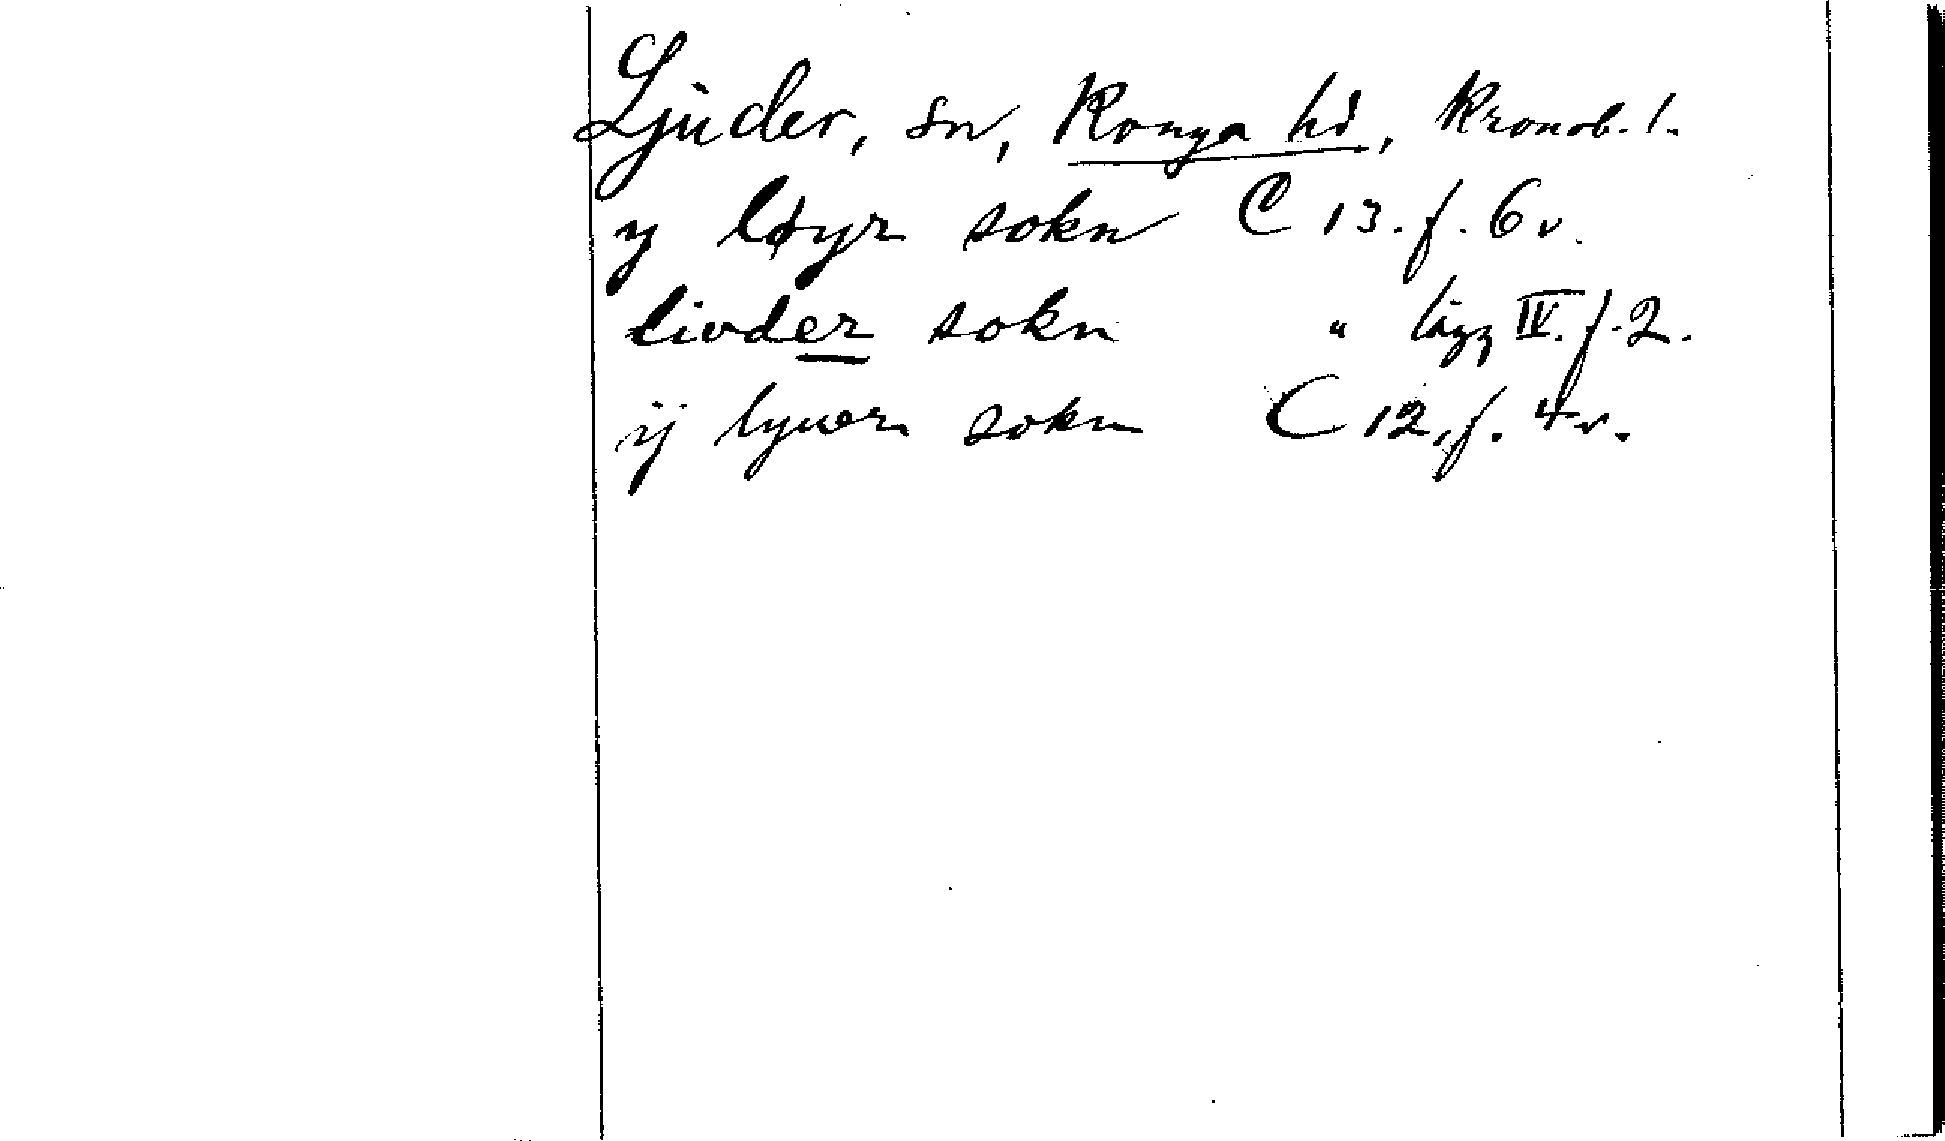 Ljuder, sn, Konga hd, Kronob. l.
y løyr sokn C 13. f. 6 v.
liuder sokn " lägg IV. f. 2.
ij lyuer sokn C 12, f. 4 v.